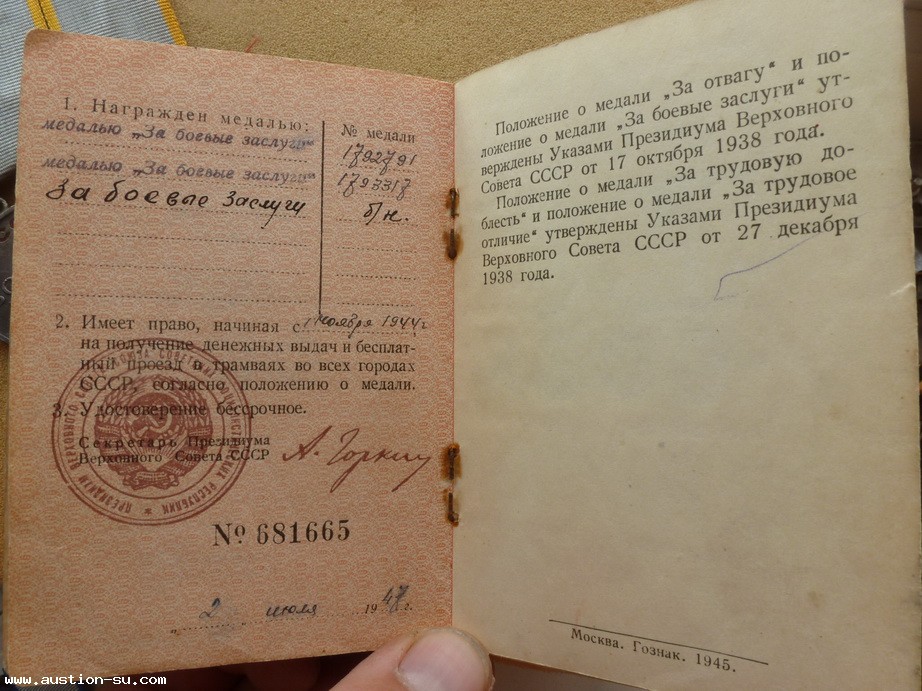 1. Награжден медалью:
№ медали
медалью „За боевые заслуги“
1792791
медалью „За боевые заслуги“
1793317
За боевые заслуги
б/н.
2. Имеет право, начиная с 1 ноября 1944г
на получение денежных выдач и бесплат-
ный проезд в трамваях во всех городах
СССР, согласно положению о медали.
3. Удостоверение бессрочное.
Секретарь Президиума
Верховного Совета СССР
А. Горкин
№ 681665
„ 2 „ июля 1947 г.
Положение о медали „За отвагу“ и по-
ложение о медали „За боевые заслуги“ ут-
верждены Указами Президиума Верховного
Совета СССР от 17 октября 1938 года.
Положение о медали „За трудовую до-
блесть“ и положение о медали „За трудовое
отличие“ утверждены Указами Президиума
Верховного Совета СССР от 27 декабря
1938 года.
Москва. Гознак. 1945.
www.austion-su.com